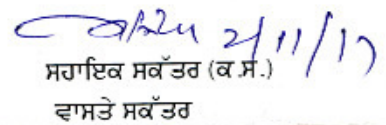 2/11/17
ਸਹਾਇਕ ਸਕੱਤਰ (ਕ.ਸ.)
ਵਾਸਤੇ ਸਕੱਤਰ